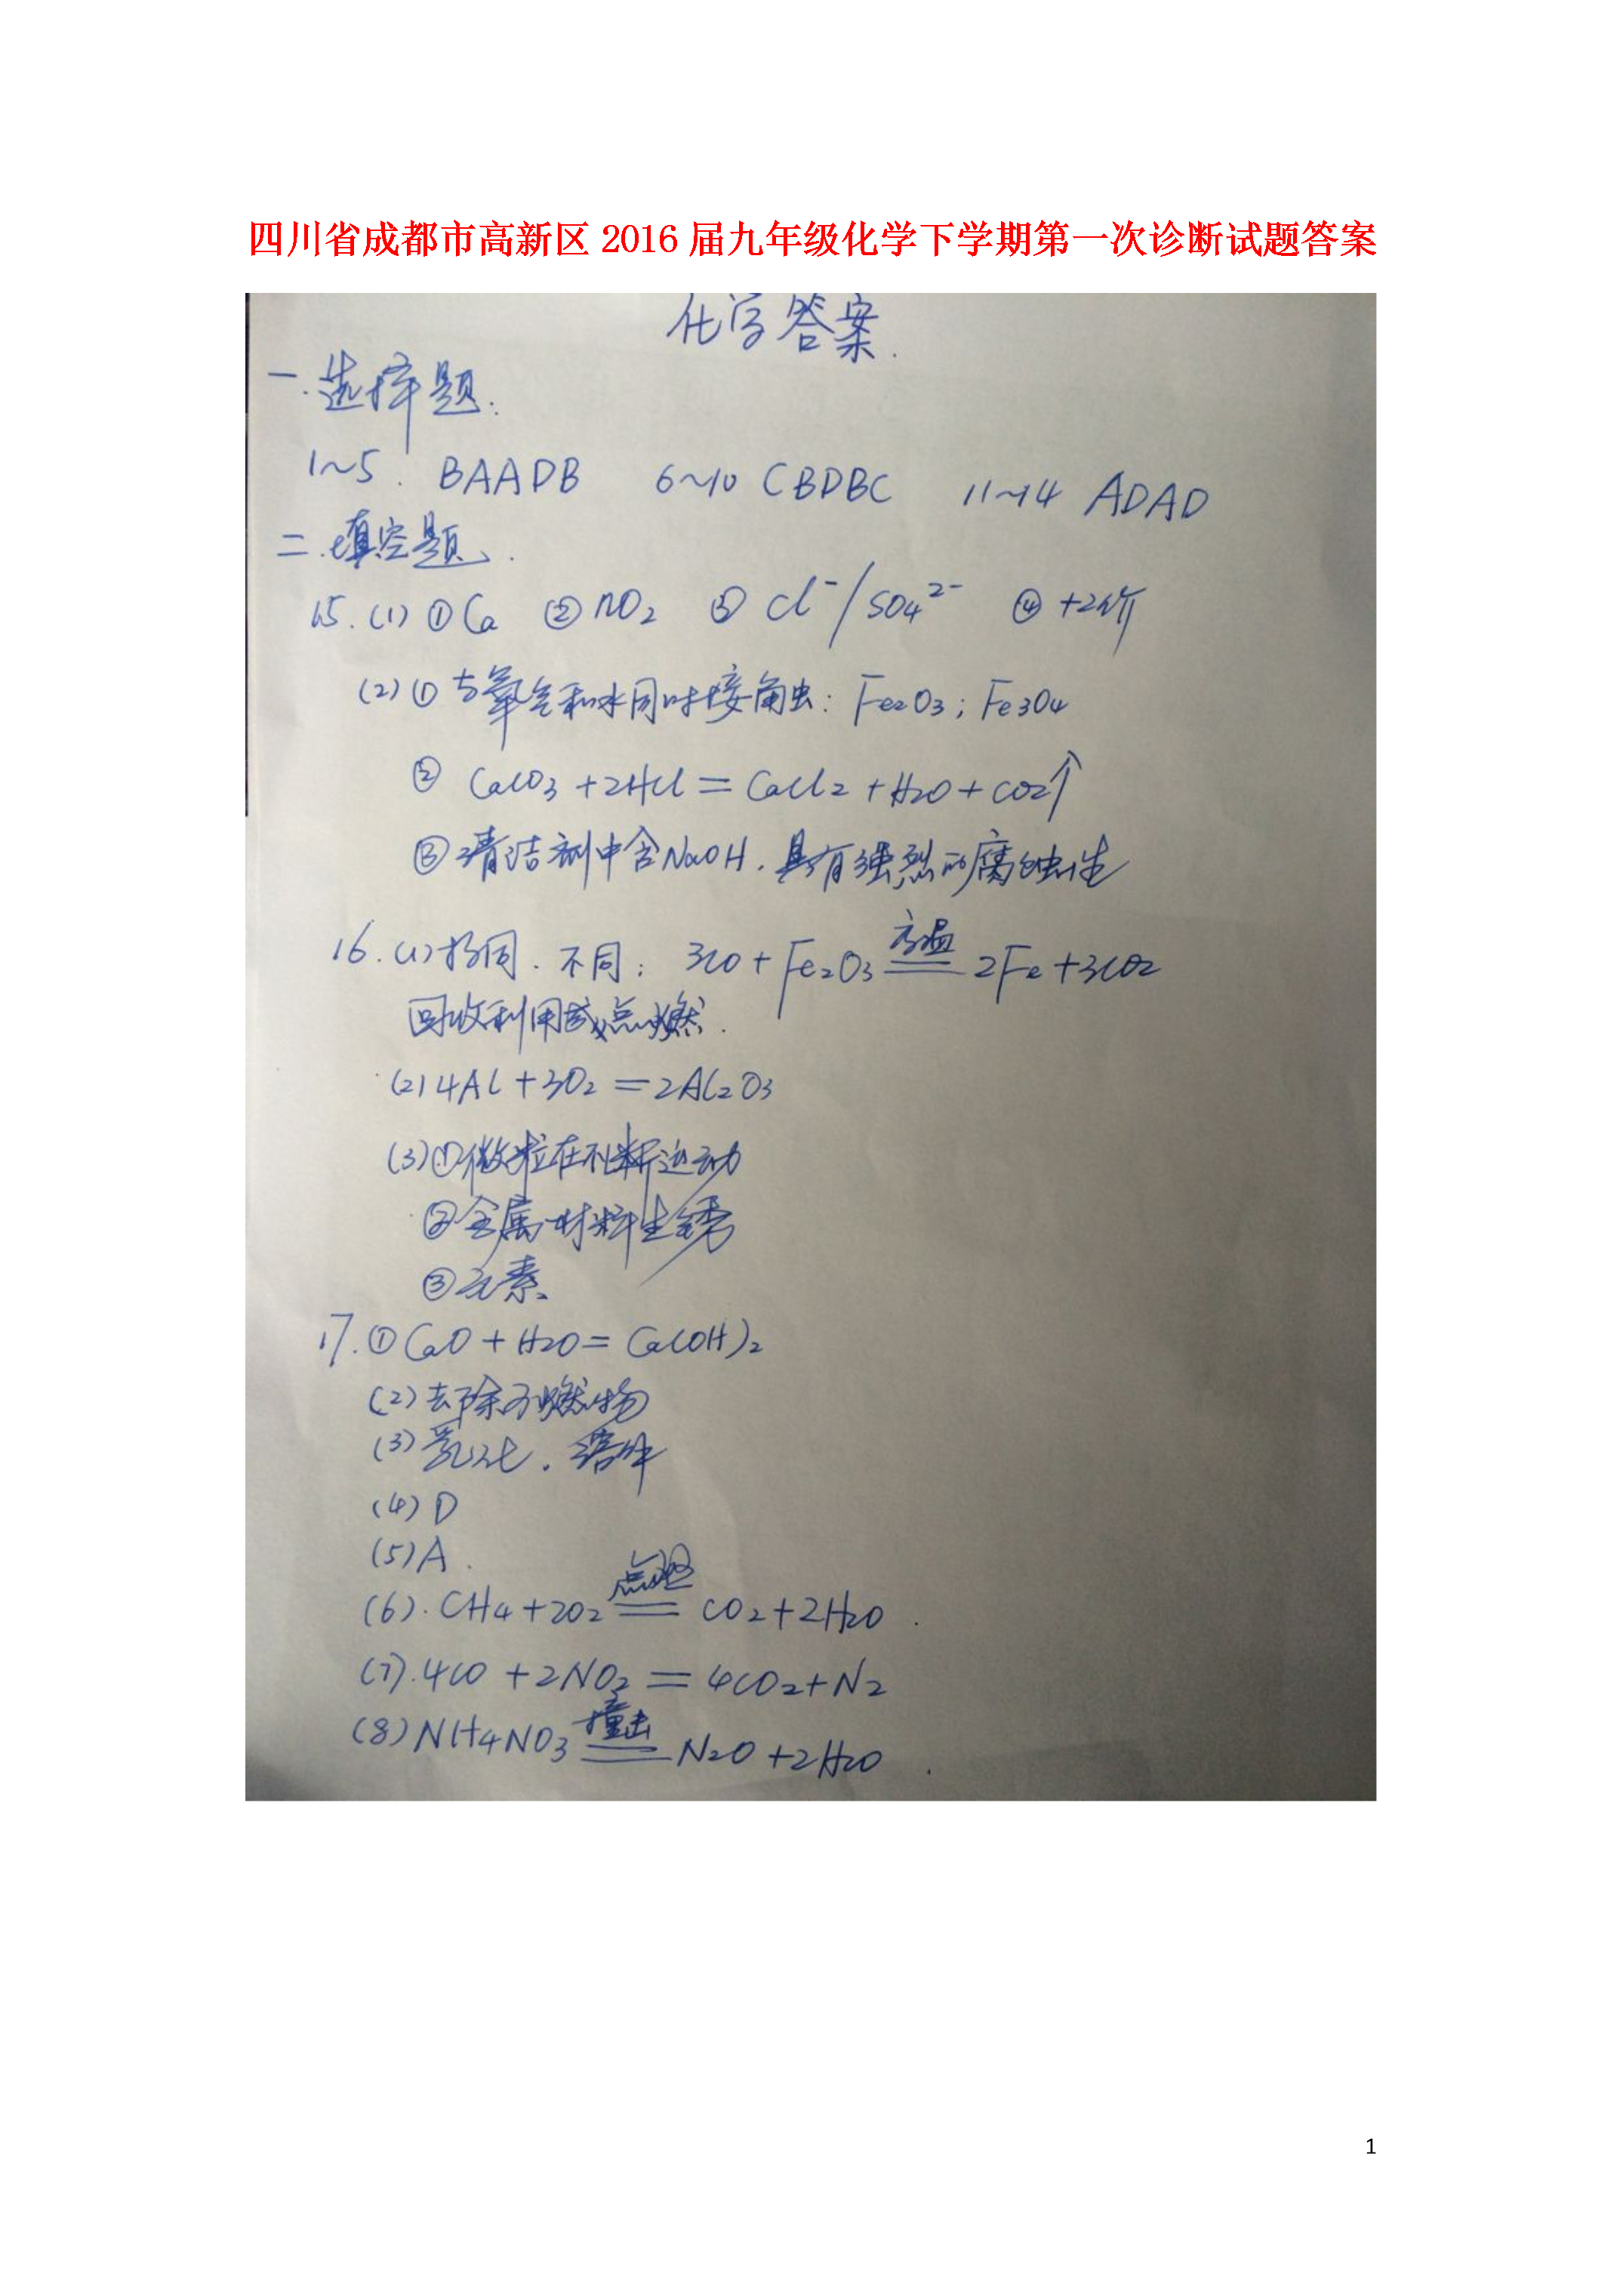 四川省成都市高新区 2016 届九年级化学下学期第一次诊断试题答案
化学答案.
一.选择题.
1~5. BAADB 6~10 CBDBC 11~14 ADAD
二.填空题.
15.(1)①Ca ②nO₂ ③Cl⁻/SO₄²⁻ ④+2价
(2)①与氧气和水同时接触: Fe₂O₃; Fe₃O₄
② CaCO₃+2HCl=CaCl₂+H₂O+CO₂↑
③清洁剂中含NaOH.具有强烈的腐蚀性
16.(1)相同.不同; 3CO+Fe₂O₃ 高温 2Fe+3CO₂
回收利用或点燃.
(2)4Al+3O₂=2Al₂O₃
(3)①微粒在不断运动
②金属材料生锈
③元素
17.①CaO+H₂O=Ca(OH)₂
(2)去除可燃物
(3)乳化.溶解
(4)D
(5)A.
(6).CH₄+2O₂ 点燃 CO₂+2H₂O.
(7).4CO+2NO₂=4CO₂+N₂
(8)NH₄NO₃ 撞击 N₂O+2H₂O.
1